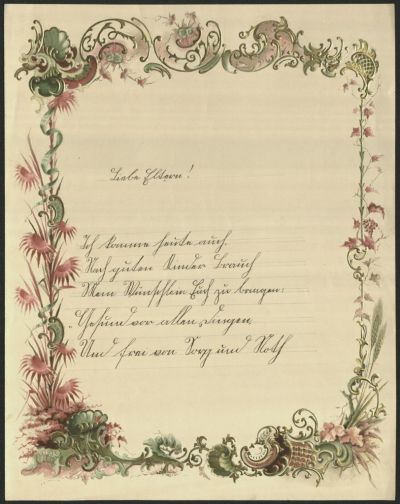 Liebe Eltern!
Ich komme heute auch,
Nach guten Kinder Brauch
Mein Wünschlein Euch zu bringen:
"Gesund vor allen Dingen,
Und frei von Sorg und Noth